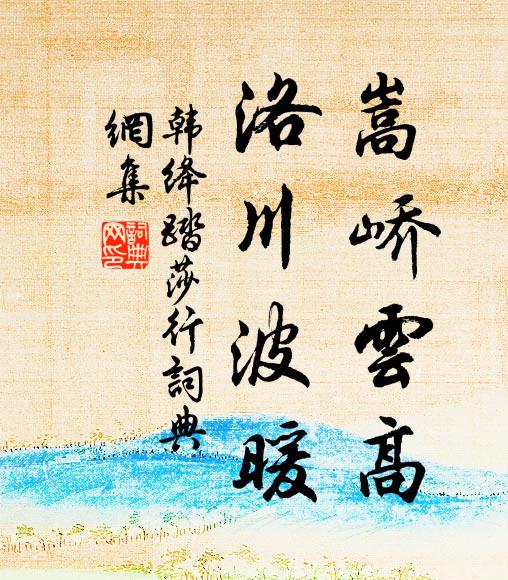 嵩峤雲高
洛川波暖
韩绛踏莎行詞典
網集
詞典
网印